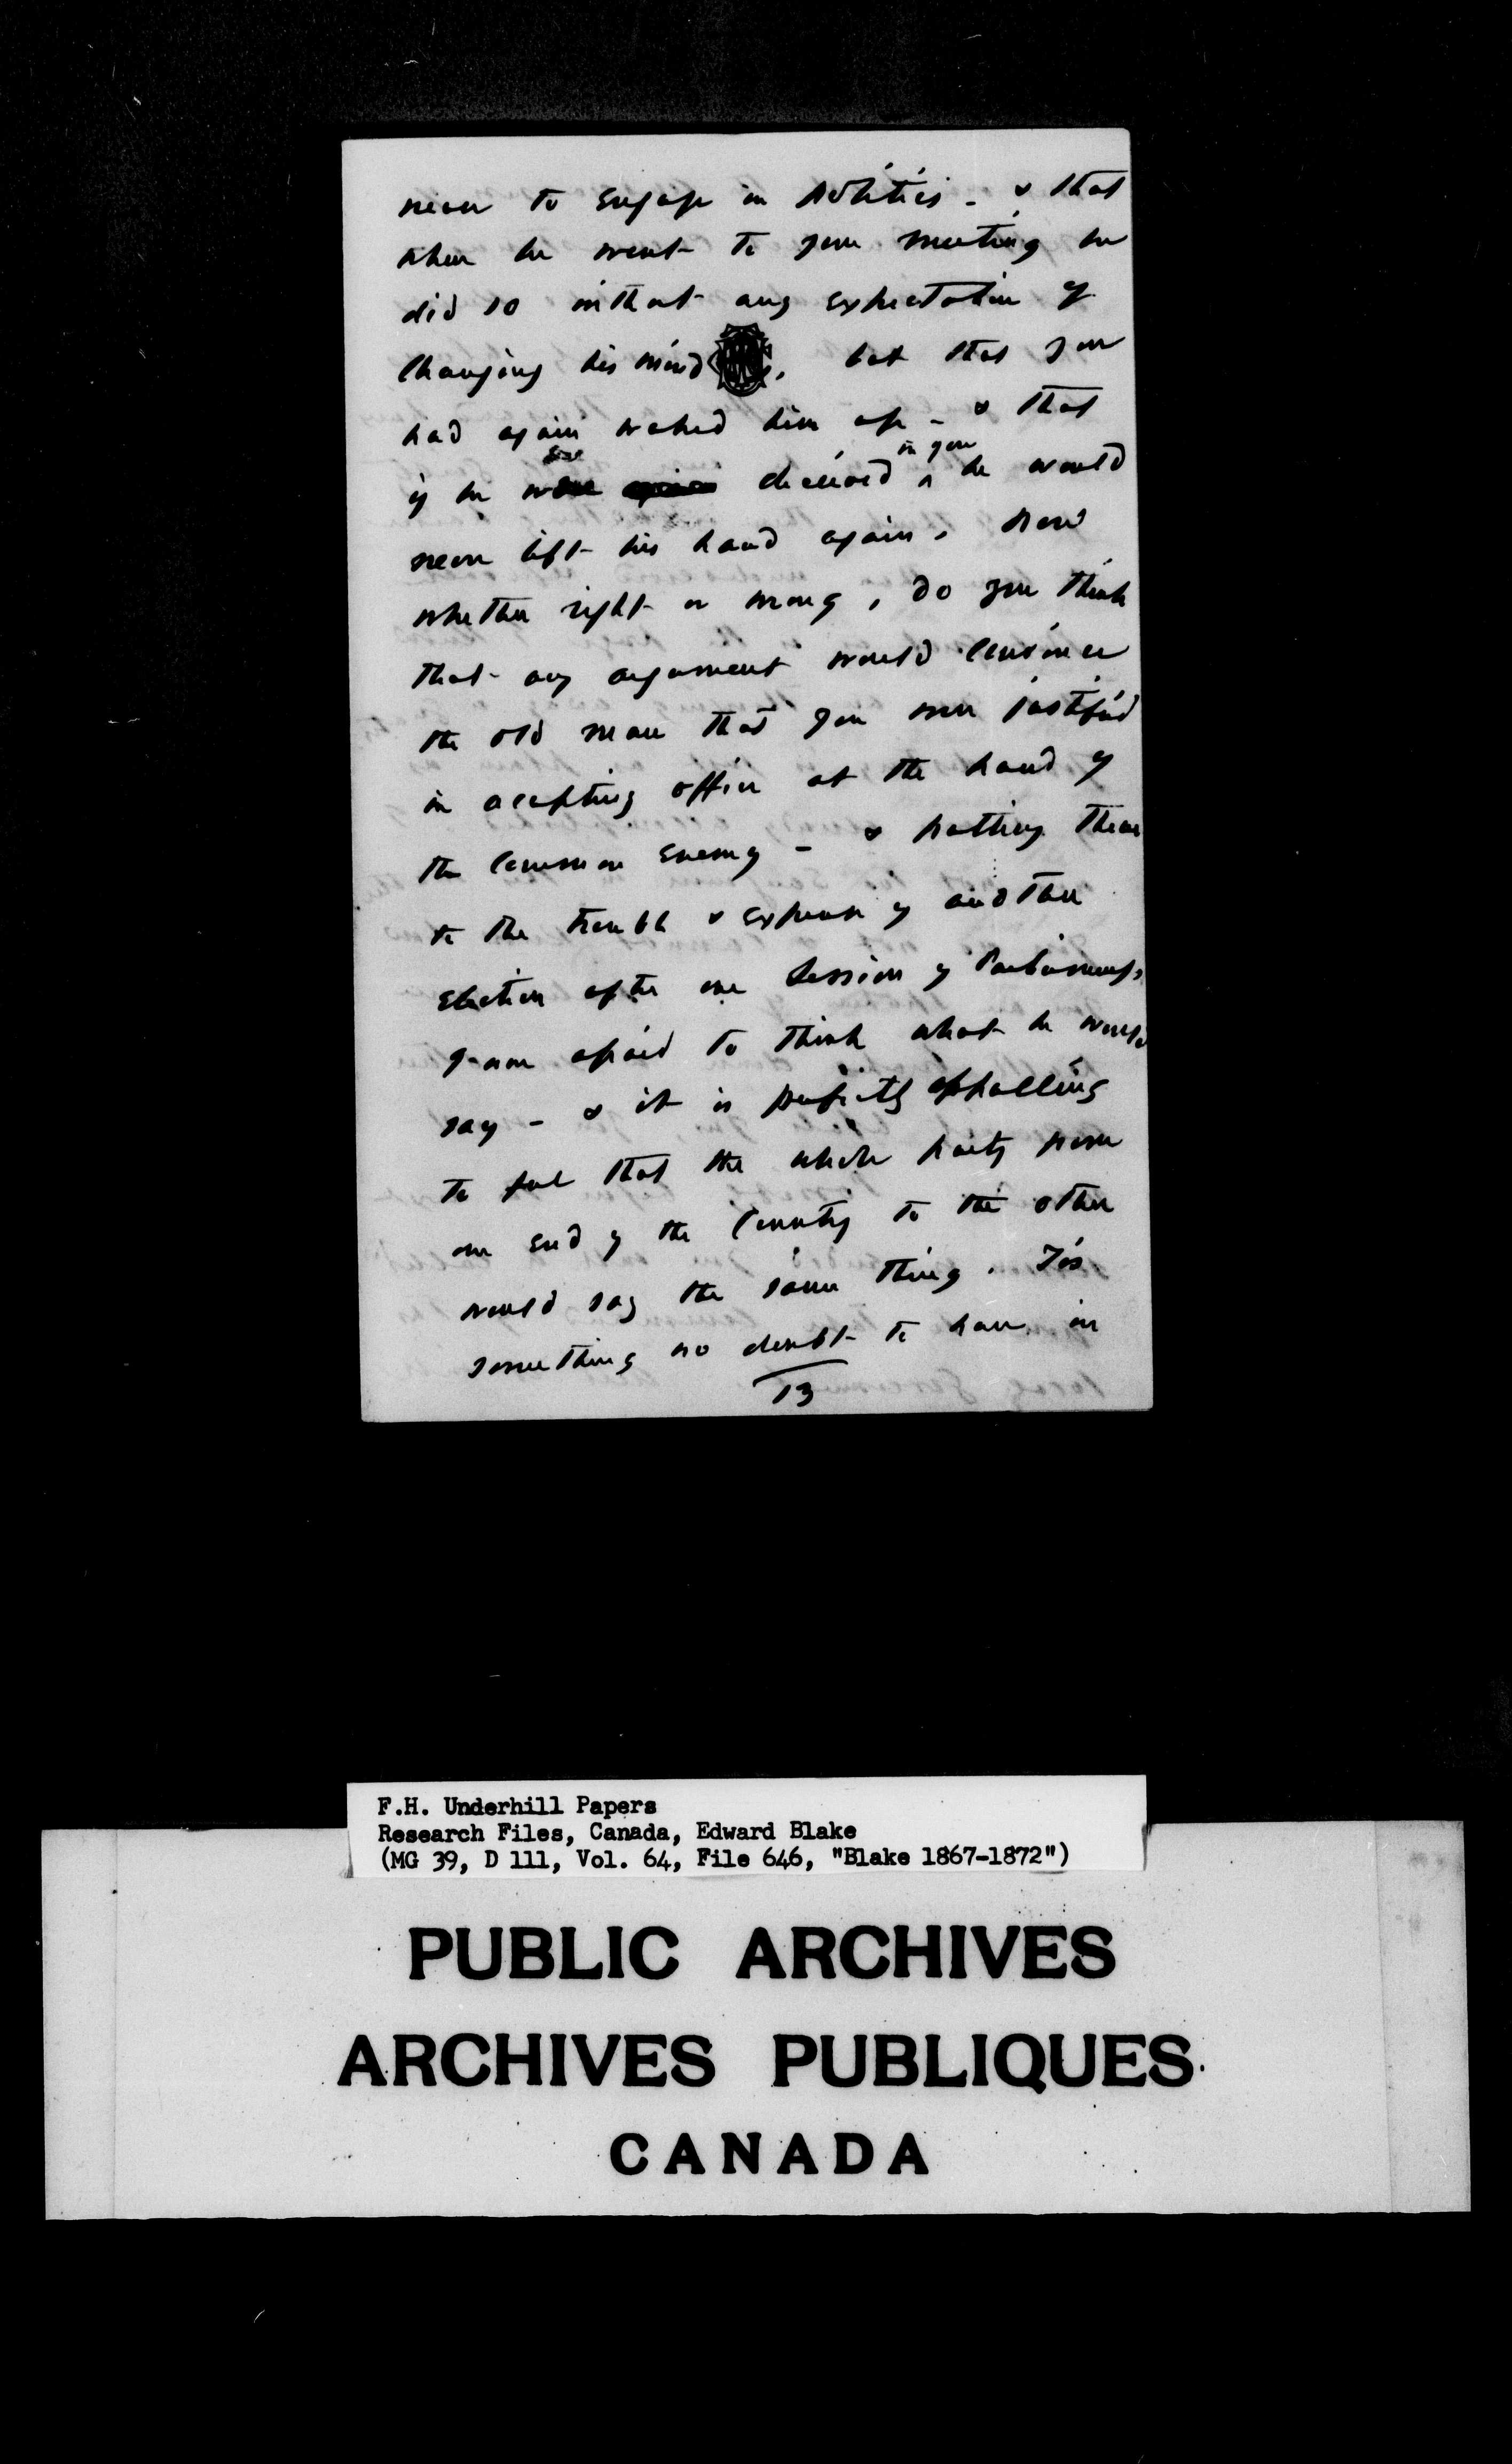 never to engage in politics - & that
when he went to your meeting he
did so without any expectation of
changing his mind, but that you
had again waked him up - & that
if he were deceived in you he would
never lift his hand again. Now
whether right or wrong, do you think
that any argument would convince
the old man that you were justified
in accepting office at the hand of
the common enemy - & putting them
to the trouble & expense of another
election after one Session of Parliament,
I am afraid to think what he would
say - & it is perfectly appalling
to feel that the whole party from
one end of the Country to the other
would say the same thing. Tis
something no doubt to have in
13
F.H. Underhill Papers
Research Files, Canada, Edward Blake
(MG 39, D 111, Vol. 64, File 646, "Blake 1867-1872")
PUBLIC ARCHIVES
ARCHIVES PUBLIQUES
CANADA